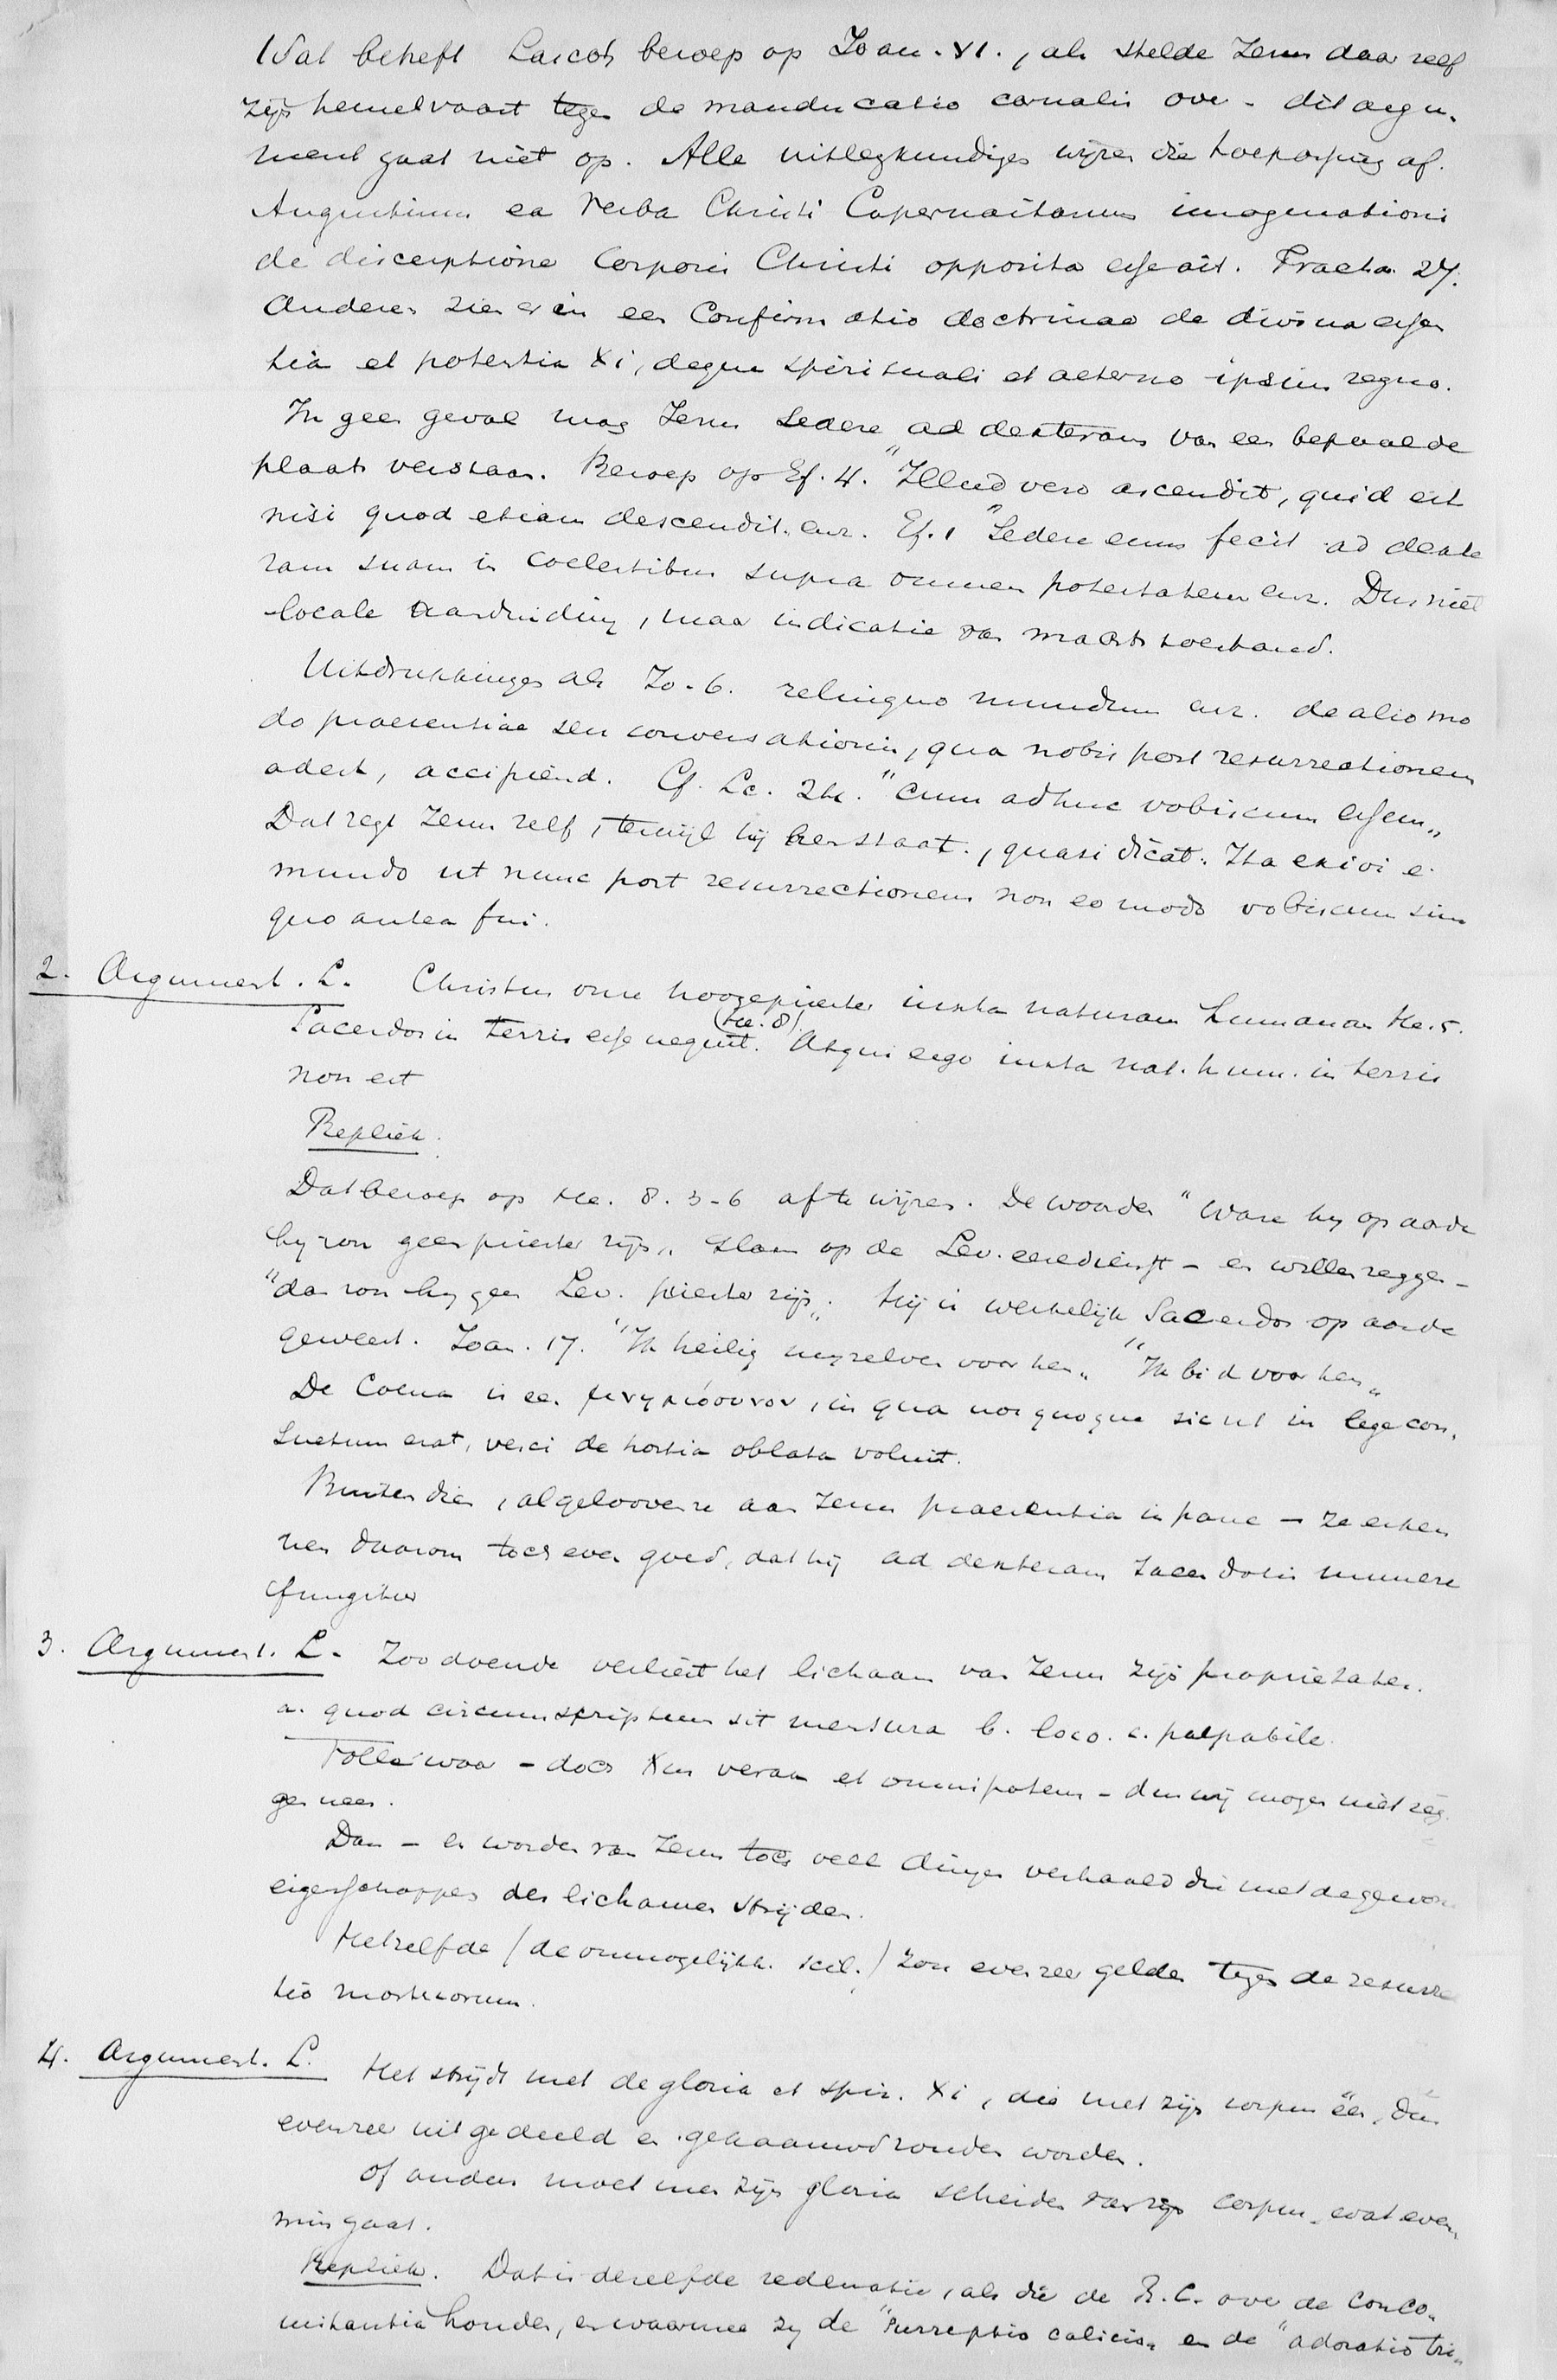 Wat betreft Lasco's beroep op Joan. VI., als stelde Jezus daar zelf
zijn hemelvaart tegen de manducatio carnalis over - dit argu-
ment gaat niet op. Alle uitlegkundigen wijzen die toepassing af.
Augustinus ea verba Christi Capernaitarum imaginationi
de discerptione Corporis Christi opposita esse ait. Tracta. 27.
Anderen zien er in een Confirmatio doctrinae de divina essen
tia et potentia Xi, deque spirituali et aeterno ipsius regno.
In geen geval mag Jezus sedere ad dexteram van een bepaalde
plaats verstaan. Beroep op Ef. 4. "Illud vero ascendit, quid est
nisi quod etiam descendit. enz. Ef. 1 "Sedere eum fecit ad dexte
ram suam in coelestibus supra omnem potestatem enz. Dus niet
locale aanduiding, maar indicatie van machtstoestand.
Uitdrukkingen als Jo. 6. relinquo mundum enz. de alio mo
do praesentiae seu conversationis, qua nobis post resurrectionem
adest, accipiend. Cf. Lc. 24. "cum adhuc vobiscum essem„
Dat zegt Jezus zelf, terwijl hij hier staat., quasi dicat: Ita exivi e
mundo ut nunc post resurrectionem non eo modo vobiscum sim
quo antea fui.
2. Argument. L. Christus onze hoogepriester iuxta naturam humanam He. 5.
Sacerdos in terris esse nequit. (He. 8) Atqui ergo iuxta nat. hum. in terris
non est
Repliek.
Dat beroep op He. 8. 3-6 af te wijzen. De woorden "Ware hij op aarde
hij zou geen priester zijn„ slaan op de Lev. eeredienst - en willen zeggen -
"dan zou hij geen Lev. priester zijn„. Hij is werkelijk Sacerdos op aarde
geweest. Joan. 17. "Ik heilig mijzelven voor hen„ "Ik bid voor hen„
De Coena is een μνημόσυνον, in qua nos quoque sicut in lege con-
suetum erat, vesci de hostia oblata voluit.
Buitendien, al gelooven ze aan Jezus praesentia in pane - ze erken
nen daarom toch even goed, dat hij ad dexteram sacerdotis munere
fungitur
3. Argument. L. Zoodoende verliest het lichaam van Jezus zijn proprietaten.
a. quod circumscriptum sit mensura b. loco. c. palpabile.
Tolle waar - doch Xus verax et omnipotens - dus wij mogen niet zeg
gen neen.
Dan - er worden van Jezus toch veel dingen verhaald die met de gewone
eigenschappen des lichamen strijden.
Hetzelfde (de onmogelijkh. scil.) zou evenzeer gelden tegen de resurrec
tio mortuorum.
4. Argument. L. Het strijdt met de gloria et spir. Xi, die met zijn corpus één, dus
evenzeer uitgedeeld en gekaauwd zouden worden.
Of anders moet men zijn gloria scheiden van zijn corpus, wat even
min gaat.
Repliek. Dat is dezelfde redenatie, als die de R.C. over de Conco-
mitantia houden, en waarmee zij de "surreptio calicis„ en de "adoratio tri-